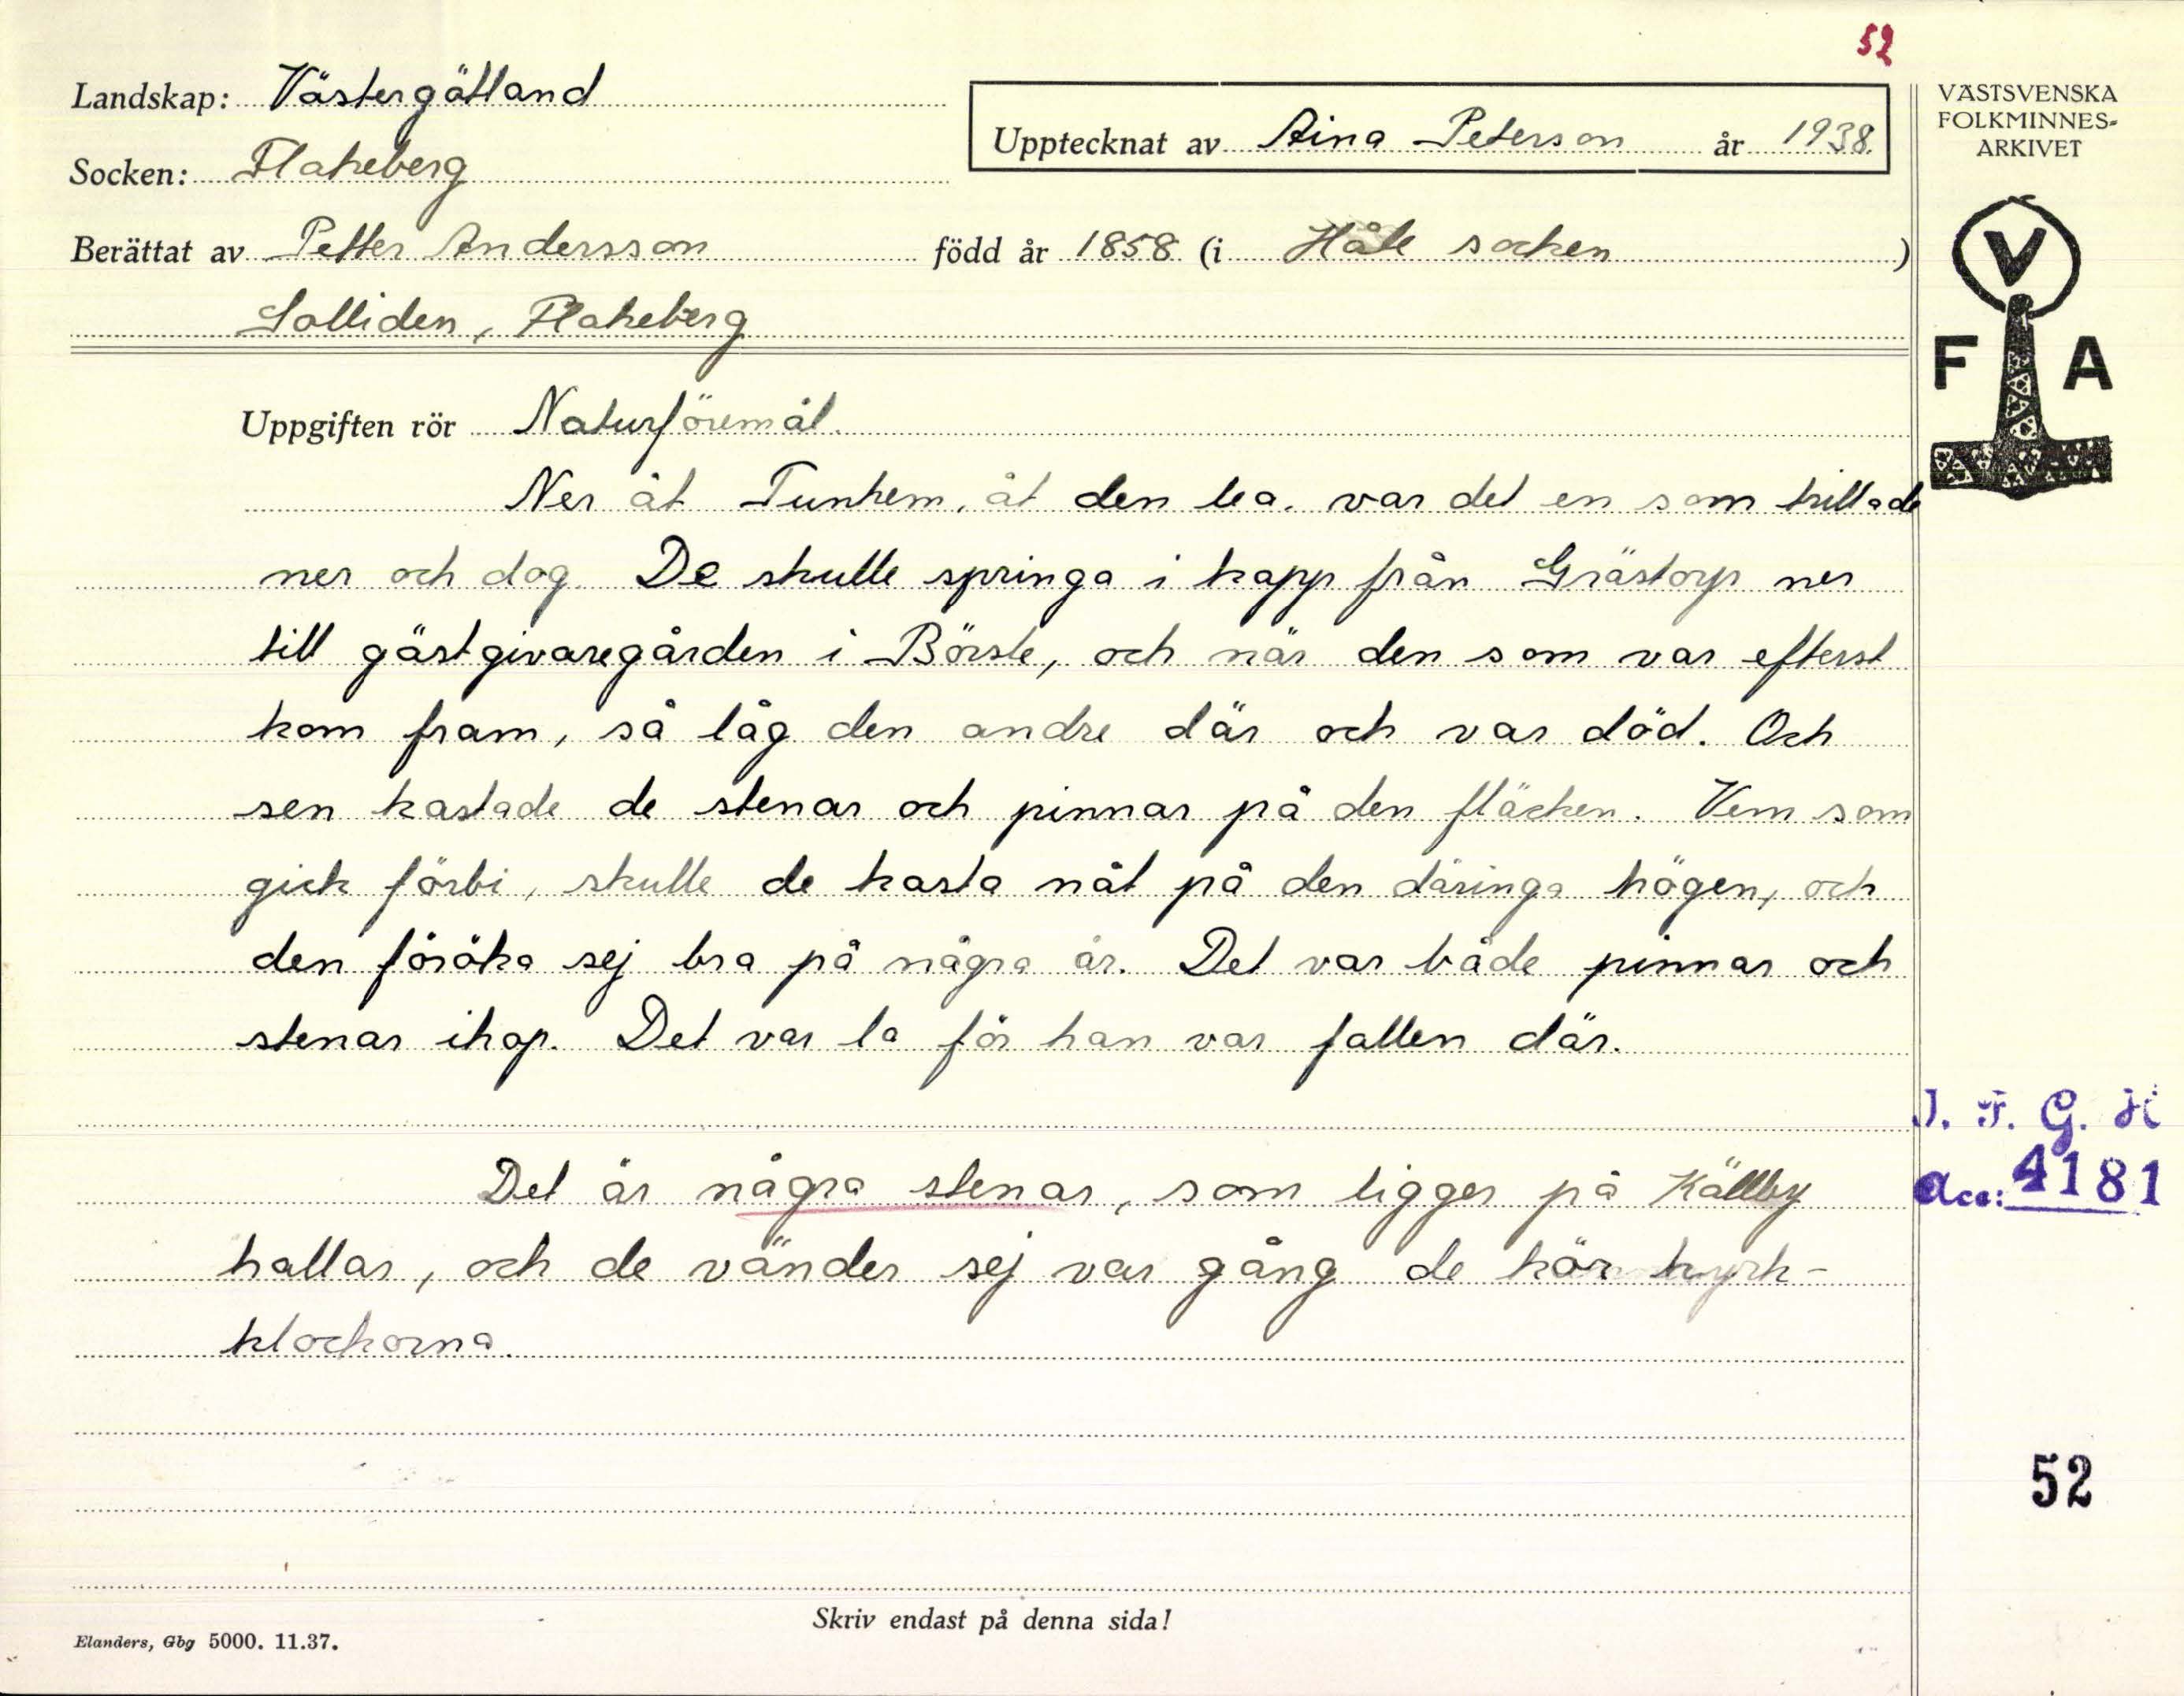 52
Landskap: Västergötland
Upptecknat av Aina Peterson år 1938.
VÄSTSVENSKA
FOLKMINNES-
ARKIVET
Socken: Flakeberg
Berättat av Petter Andersson född år 1858 (i Håle socken)
Solliden, Flakeberg
V
F A
Uppgiften rör Naturföremål.
Ner åt Tunhem, åt den lea. var det en som trillade
ner och dog. De skulle springa i kapp från Grästorp ner
till gästgivaregården i Börsle, och när den som var efterst
kom fram, så låg den andre där och var död. Och
sen kastade de stenar och pinnar på den fläcken. Vem som
gick förbi, skulle de kasta nåt på den däringa högen, och
den föröka sej bra på några år. Det var både pinnar och
stenar ihop. Det var la för han var fallen där.
Det är några stenar, som ligger på Källby
hallar, och de vänder sej var gång de hör kyrk-
klockorna.
I. F. G. H
Acc: 4181
52
Skriv endast på denna sida!
Elanders, Gbg 5000. 11.37.